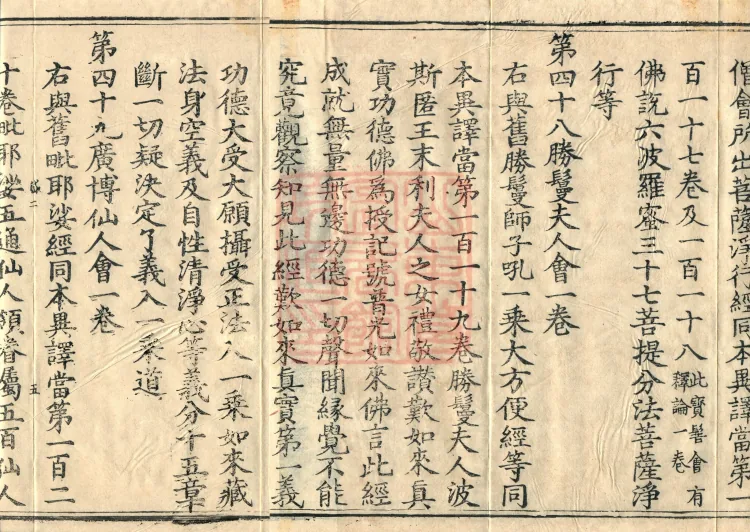 僧會所出菩薩淨行經同本異譯當第一
百一十七卷及一百一十八此寶髻會有釋論一卷
佛説六波羅蜜三十七菩提分法菩薩淨
行等
第四十八勝鬘夫人會一卷
右與舊勝鬘師子吼一乘大方便經等同
本異譯當第一百一十九卷勝鬘夫人波
斯匿王末利夫人之女禮敬讚歎如來真
實功德佛為授記號普光如來佛言此經
成就無量無邊功德一切聲聞緣覺不能
究竟觀察知見此經歎如來真實第一義
功德大受大願攝受正法入一乘如來藏
法身空義及自性清淨心等義分十五章
斷一切疑決定了義入一乘道
第四十九廣博仙人會一卷
右與舊毗耶娑經同本異譯當第一百二
十卷毗耶娑五通仙人領眷屬五百仙人
五